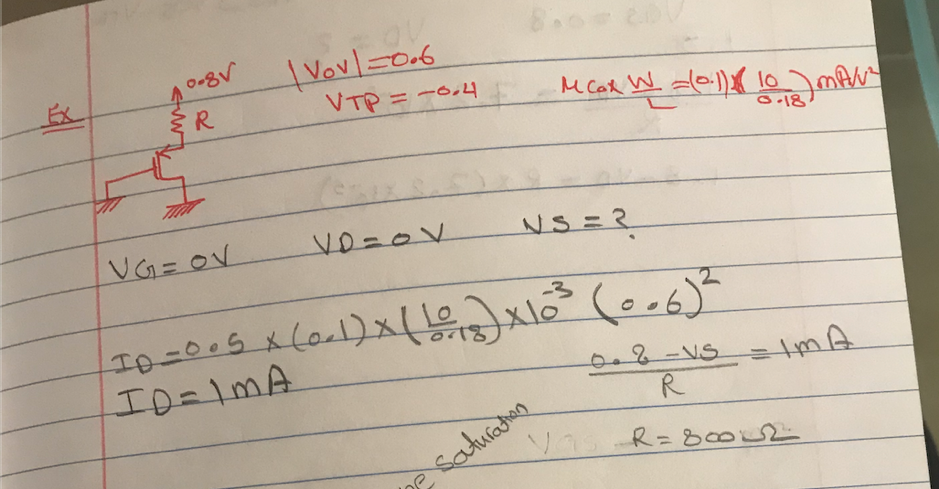 Ex
0.8V
R
|VOV| = 0.6
VTP = -0.4
μCox W/L = (0.1)(10/0.18) mA/V²
VG = 0V VD = 0V VS = ?
ID = 0.5 × (0.1) × (10/0.18) × 10⁻³ (0.6)²
ID = 1mA
(0.8 - VS)/R = 1mA
R = 800Ω
saturation